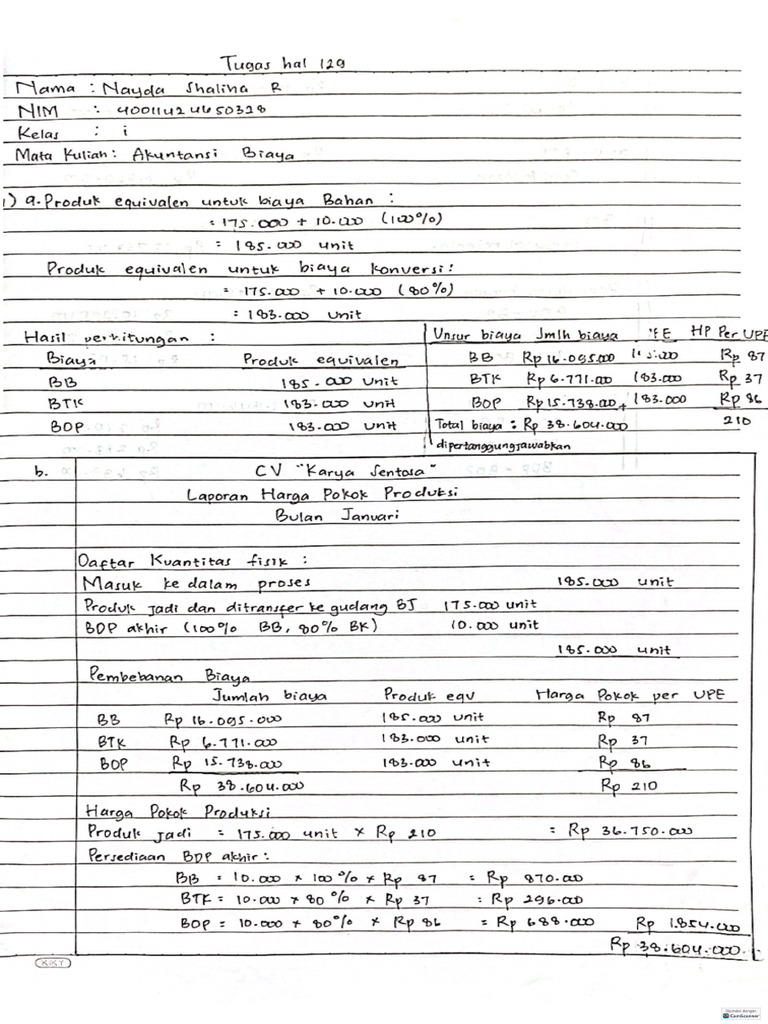 Tugas hal 129
Nama : Nayda Shalina R
NIM : 40011424650328
Kelas : i
Mata Kuliah : Akuntansi Biaya
1) a. Produk equivalen untuk biaya Bahan :
= 175.000 + 10.000 (100%)
= 185.000 unit
Produk equivalen untuk biaya konversi :
= 175.000 + 10.000 (80%)
= 183.000 unit
Hasil perhitungan :
Biaya Produk equivalen
BB 185.000 unit
BTK 183.000 unit
BOP 183.000 unit
Unsur biaya Jmlh biaya HP Per UPE
BB Rp 16.095.000 Rp 87
BTK Rp 6.771.000 183.000 Rp 37
BOP Rp 15.738.000 + 183.000 Rp 86
Total biaya : Rp 38.604.000 210
dipertanggungjawabkan
b. CV "Karya Sentosa"
Laporan Harga Pokok Produksi
Bulan Januari
Daftar Kuantitas fisik :
Masuk ke dalam proses 185.000 unit
Produk jadi dan ditransfer ke gudang BJ 175.000 unit
BDP akhir (100% BB, 80% BK) 10.000 unit
185.000 unit
Pembebanan Biaya
Jumlah biaya Produk eqv Harga Pokok per UPE
BB Rp 16.095.000 185.000 unit Rp 87
BTK Rp 6.771.000 183.000 unit Rp 37
BOP Rp 15.738.000 183.000 unit Rp 86
Rp 38.604.000 Rp 210
Harga Pokok Produksi
Produk jadi = 175.000 unit x Rp 210 = Rp 36.750.000
Persediaan BDP akhir :
BB = 10.000 x 100% x Rp 87 = Rp 870.000
BTK = 10.000 x 80% x Rp 37 = Rp 296.000
BOP = 10.000 x 80% x Rp 86 = Rp 688.000 Rp 1.854.000
Rp 38.604.000
KIKY
CamScanner